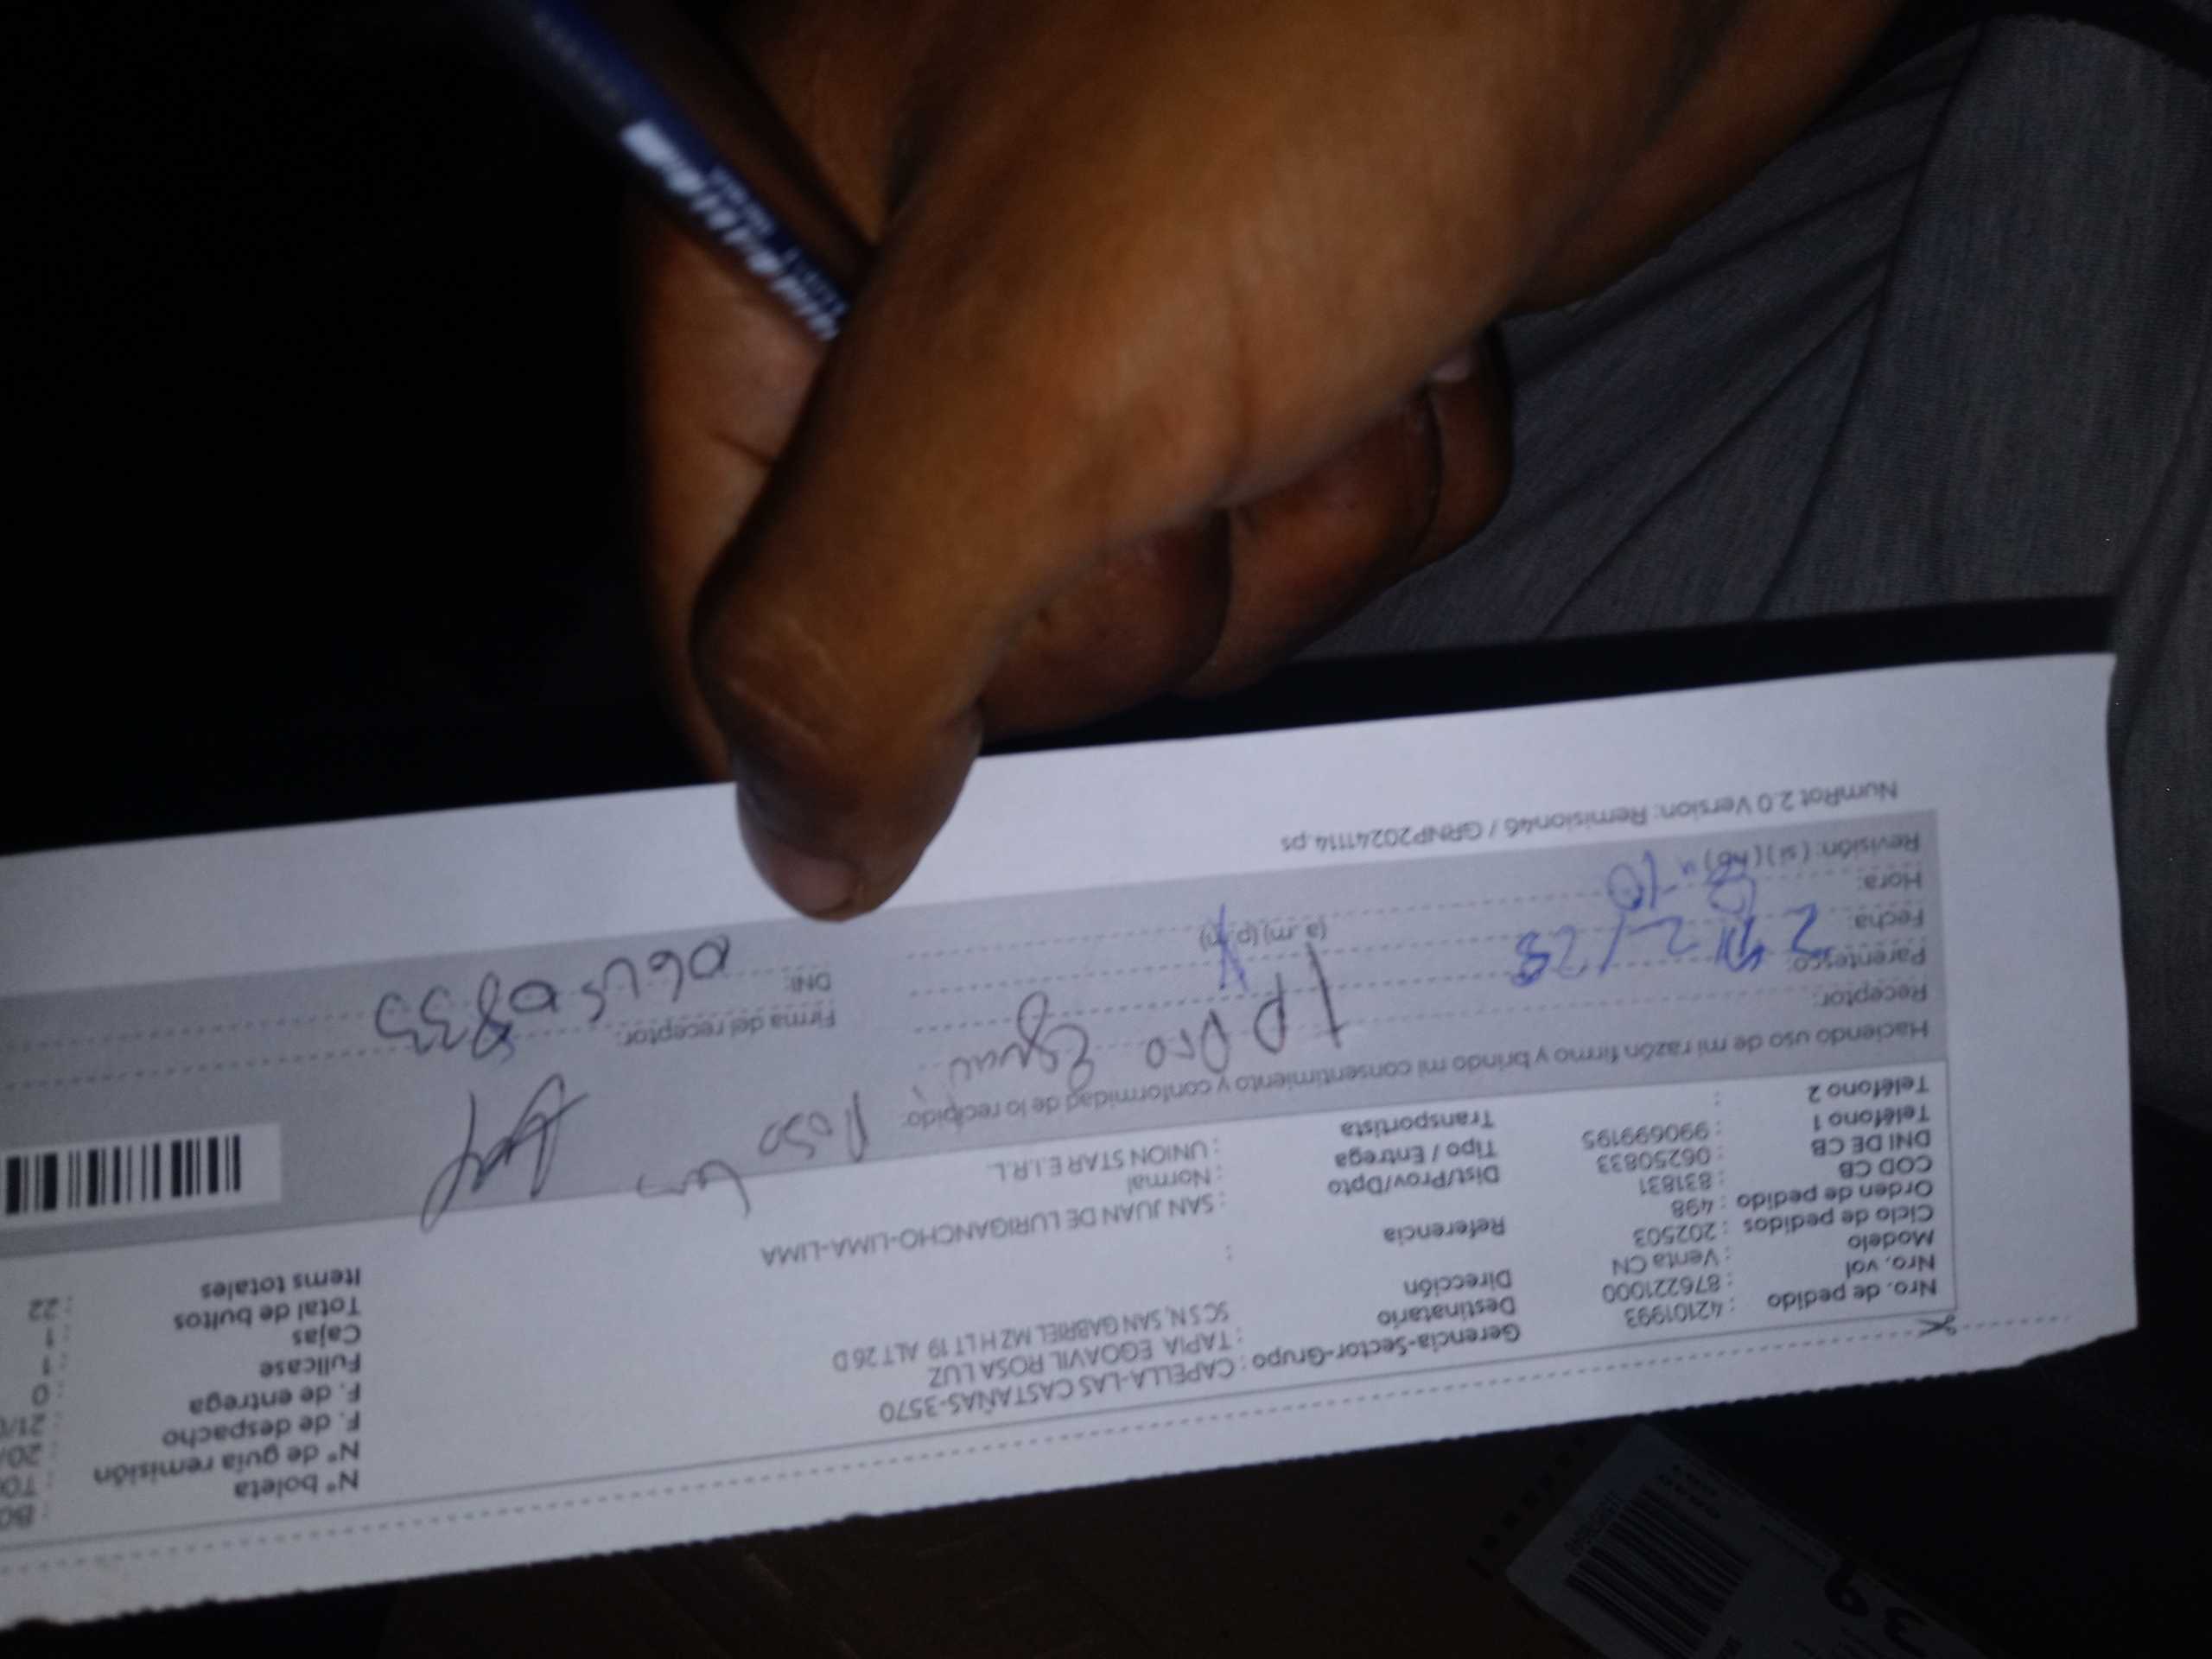 Nº boleta : B0
Nº de guía remisión : T00
F. de despacho : 20/
F. de entrega : 21/0
Fullcase : 0
Cajas : 1
Total de bultos : 1
Items totales : 22
Gerencia-Sector-Grupo : CAPELLA-LAS CASTAÑAS-3570
Destinatario : TAPIA EGOAVIL ROSA LUZ
Dirección : SC SN, SAN GABRIEL MZ H LT 19 ALT 26 D
Referencia :
Dist/Prov/Dpto : SAN JUAN DE LURIGANCHO-LIMA-LIMA
Tipo / Entrega : Normal
Transportista : UNION STAR E.I.R.L.
Nro. de pedido : 42101993
Nro. vol : 876221000
Modelo : Venta CN
Ciclo de pedidos : 202503
Orden de pedido : 498
COD CB : 831831
DNI DE CB : 06250833
Teléfono 1 : 990699195
Teléfono 2 :
Haciendo uso de mi razón firmo y brindo mi consentimiento y conformidad de lo recibido:
Receptor:
Rosa
Parentesco:
Fecha:
Hora: (a.m) (p.m)
Revisión: (si) (no)
Firma del receptor:
DNI: 06250833
NumRot 2.0 Version: Remision46 / GRNP20241114.ps
39